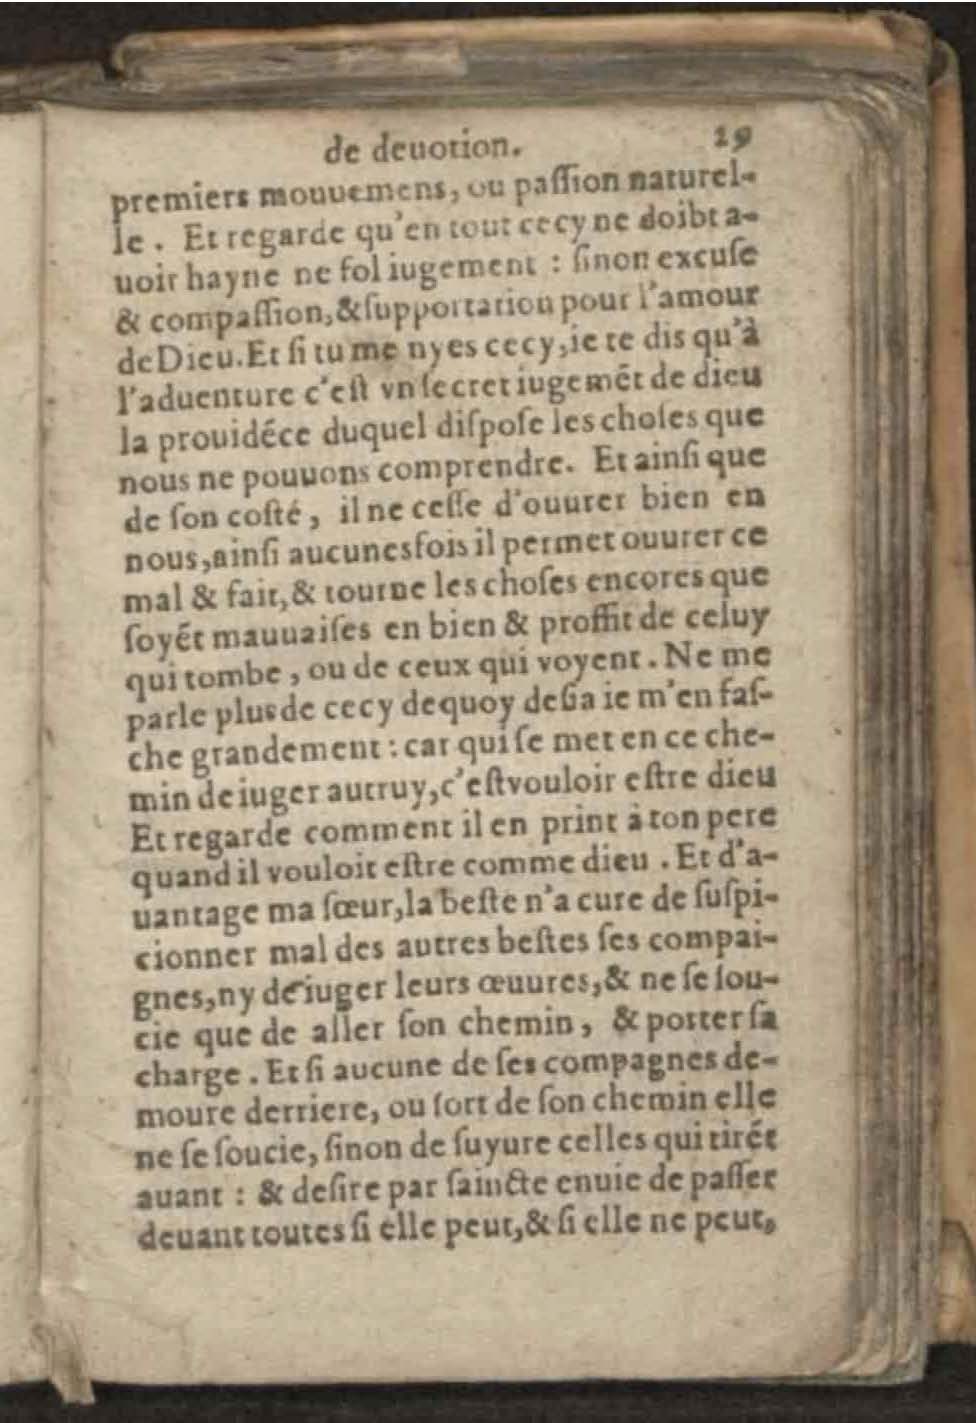 de deuotion. 29
premiers mouuemens, ou paſſion naturel-
le. Et regarde qu'en tout cecy ne doibt a-
uoir hayne ne fol iugement : ſinon excuſe
& compaſſion, & ſupportation pour l'amour
de Dieu. Et ſi tu me nyes cecy, ie te dis qu'à
l'aduenture c'eſt vn ſecret iugemẽt de dieu
la prouidéce duquel diſpoſe les choſes que
nous ne pouuons comprendre. Et ainſi que
de ſon coſté, il ne ceſſe d'ouurer bien en
nous, ainſi aucunesfois il permet ouurer ce
mal & fait, & tourne les choſes encores que
ſoyét mauuaiſes en bien & proffit de celuy
qui tombe, ou de ceux qui voyent. Ne me
parle plus de cecy dequoy deſia ie m'en faſ-
che grandement : car qui ſe met en ce che-
min de iuger autruy, c'eſt vouloir eſtre dieu
Et regarde comment il en print à ton pere
quand il vouloit eſtre comme dieu. Et d'a-
uantage ma ſœur, la beſte n'a cure de ſuſpi-
cionner mal des autres beſtes ſes compai-
gnes, ny de iuger leurs œuures, & ne ſe ſou-
cie que de aller ſon chemin, & porter ſa
charge. Et ſi aucune de ſes compagnes de-
moure derriere, ou ſort de ſon chemin elle
ne ſe ſoucie, ſinon de ſuyure celles qui tirét
auant : & deſire par ſaincte enuie de paſſer
deuant toutes ſi elle peut, & ſi elle ne peut,